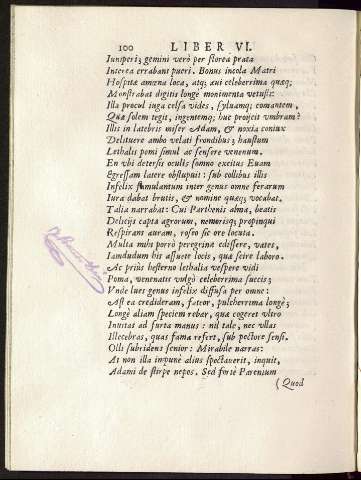 100 LIBER VI.
Iuniperi; gemini verò per florea prata
Interea errabant pueri. Bonus incola Matri
Hospitæ amœna loca, atq; aui celeberrima quæq;
Monstrabat digitis longè monimenta vetustis:
Illa procul iuga celsa vides, syluamq; comantem,
Quæ solem tegit, ingentemq; huc proijcit vmbram?
Illis in latebris miser Adam, & noxia coniux
Delituere ambo velati frondibus; haustum
Lethalis pomi simul ac sensere venenum.
En vbi detersis oculis somno excitus Euam
Egressam latere obstupuit: sub collibus illis
Infelix famulantum inter genus omne ferarum
Iura dabat brutis, & nomine quæq; vocabat.
Talia narrabat: Cui Parthenis alma, beatis
Delicijs capta agrorum, nemorisq; propinqui
Respirant auram, roseo sic ore locuta.
Multa mihi porrò peregrina edissere, vates,
Iamdudum his assuete locis, quæ scire laboro.
Ac priùs hesterno lethalia vespere vidi
Poma, venenatis vulgò celeberrima succis;
Vnde lues genus infelix diffusa per omne:
Ast ea credideram, fateor, pulcherrima longè;
Longè aliam speciem rebar, quæ cogeret vltro
Inuitas ad furta manus: nil tale, nec vllas
Illecebras, quas fama refert, sub pectore sensi.
Olli subridens senior: Mirabile narras:
At non illa impunè alius spectauerit, inquit,
Adami de stirpe nepos. Sed fortè Parentum
(Quod